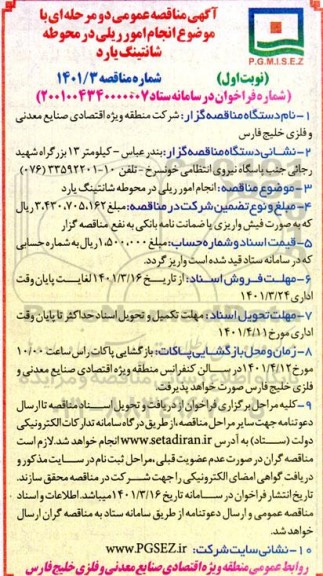 آگهی مناقصه عمومی دو مرحله‌ای با
موضوع انجام امور ریلی در محوطه
شانتینگ یارد
P.G.M.I.S.E.Z
(نوبت اول)
شماره مناقصه ۱۴۰۱/۳
(شماره فراخوان در سامانه ستاد ۲۰۰۱۰۰۴۳۴۰۰۰۰۰۷)
۱- نام دستگاه مناقصه گزار: شرکت منطقه ویژه اقتصادی صنایع معدنی
و فلزی خلیج فارس
۲- نشانی دستگاه مناقصه گزار: بندرعباس - کیلومتر ۱۳ بزرگراه شهید
رجائی جنب پاسگاه نیروی انتظامی خونسرخ - تلفن ۱۰-۳۳۵۹۲۲۰۱ (۰۷۶)
۳- موضوع مناقصه: انجام امور ریلی در محوطه شانتینگ یارد
۴- مبلغ و نوع تضمین شرکت در مناقصه: مبلغ ۳،۴۳۰،۷۰۵،۱۶۲ ریال
که به صورت فیش واریزی یا ضمانت نامه بانکی به نفع مناقصه گزار
۵- قیمت اسناد و شماره حساب: مبلغ ۱،۵۰۰،۰۰۰ ریال به شماره حسابی
که در سامانه ستاد قید شده است واریز گردد.
۶- مهلت فروش اسناد: از تاریخ ۱۴۰۱/۳/۱۶ لغایت پایان وقت
اداری ۱۴۰۱/۳/۲۴
۷- مهلت تحویل اسناد: مهلت تکمیل و تحویل اسناد حداکثر تا پایان وقت
اداری مورخ ۱۴۰۱/۴/۱۱
۸- زمان و محل بازگشایی پاکات: بازگشایی پاکات راس ساعت ۱۰/۰۰
مورخ ۱۴۰۱/۴/۱۲ در سالن کنفرانس منطقه ویژه اقتصادی صنایع معدنی و
فلزی خلیج فارس صورت خواهد پذیرفت.
۹- کلیه مراحل برگزاری فراخوان از دریافت و تحویل اسناد مناقصه تا ارسال
دعوتنامه جهت سایر مراحل مناقصه، از طریق درگاه سامانه تدارکات الکترونیکی
دولت (ستاد) به آدرس www.setadiran.ir انجام خواهد شد. لازم است
مناقصه گران در صورت عدم عضویت قبلی، مراحل ثبت نام در سایت مذکور و
دریافت گواهی امضای الکترونیکی را جهت شرکت در مناقصه محقق سازند.
تاریخ انتشار فراخوان در سامانه تاریخ ۱۴۰۱/۳/۱۶ میباشد. اطلاعات و اسناد
مناقصه عمومی و ارسال دعوتنامه از طریق سامانه ستاد به مناقصه گران ارسال
خواهد شد.
۱۰- نشانی سایت شرکت: www.PGSEZ.ir
روابط عمومی منطقه ویژه اقتصادی صنایع معدنی و فلزی خلیج فارس